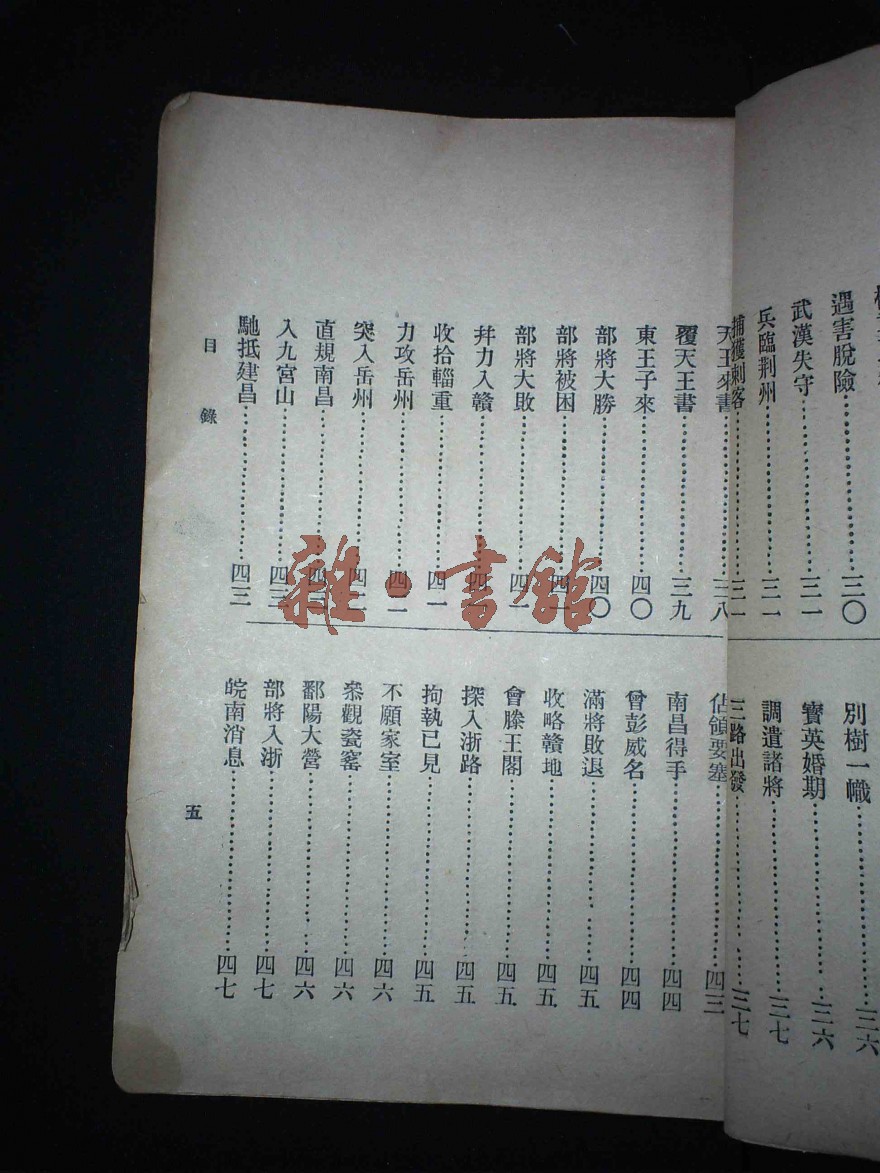 遇害脫險………三〇
武漢失守………三一
兵臨荆州………三一
捕獲刺客………三一
別樹一幟………三六
寶英婚期………三六
調遣諸將………三七
三路出發………三七
天王來書………三八
覆天王書………三九
東王子來………四〇
部將大勝………四〇
部將被困………四一
部將大敗………四一
幷力入贛………四一
收拾輜重………四一
力攻岳州………四二
突入岳州………四二
直規南昌………
入九宮山………四三
馳抵建昌………四三
佔領要塞………四三
南昌得手………四四
曾彭威名………四四
滿將敗退………四五
收略贛地………四五
會滕王閣………四五
探入浙路………四五
拘執已見………四五
不願家室………四六
叅觀瓷窰………四六
鄱陽大營………四六
部將入浙………四七
皖南消息………四七
目錄
五
雜·書館